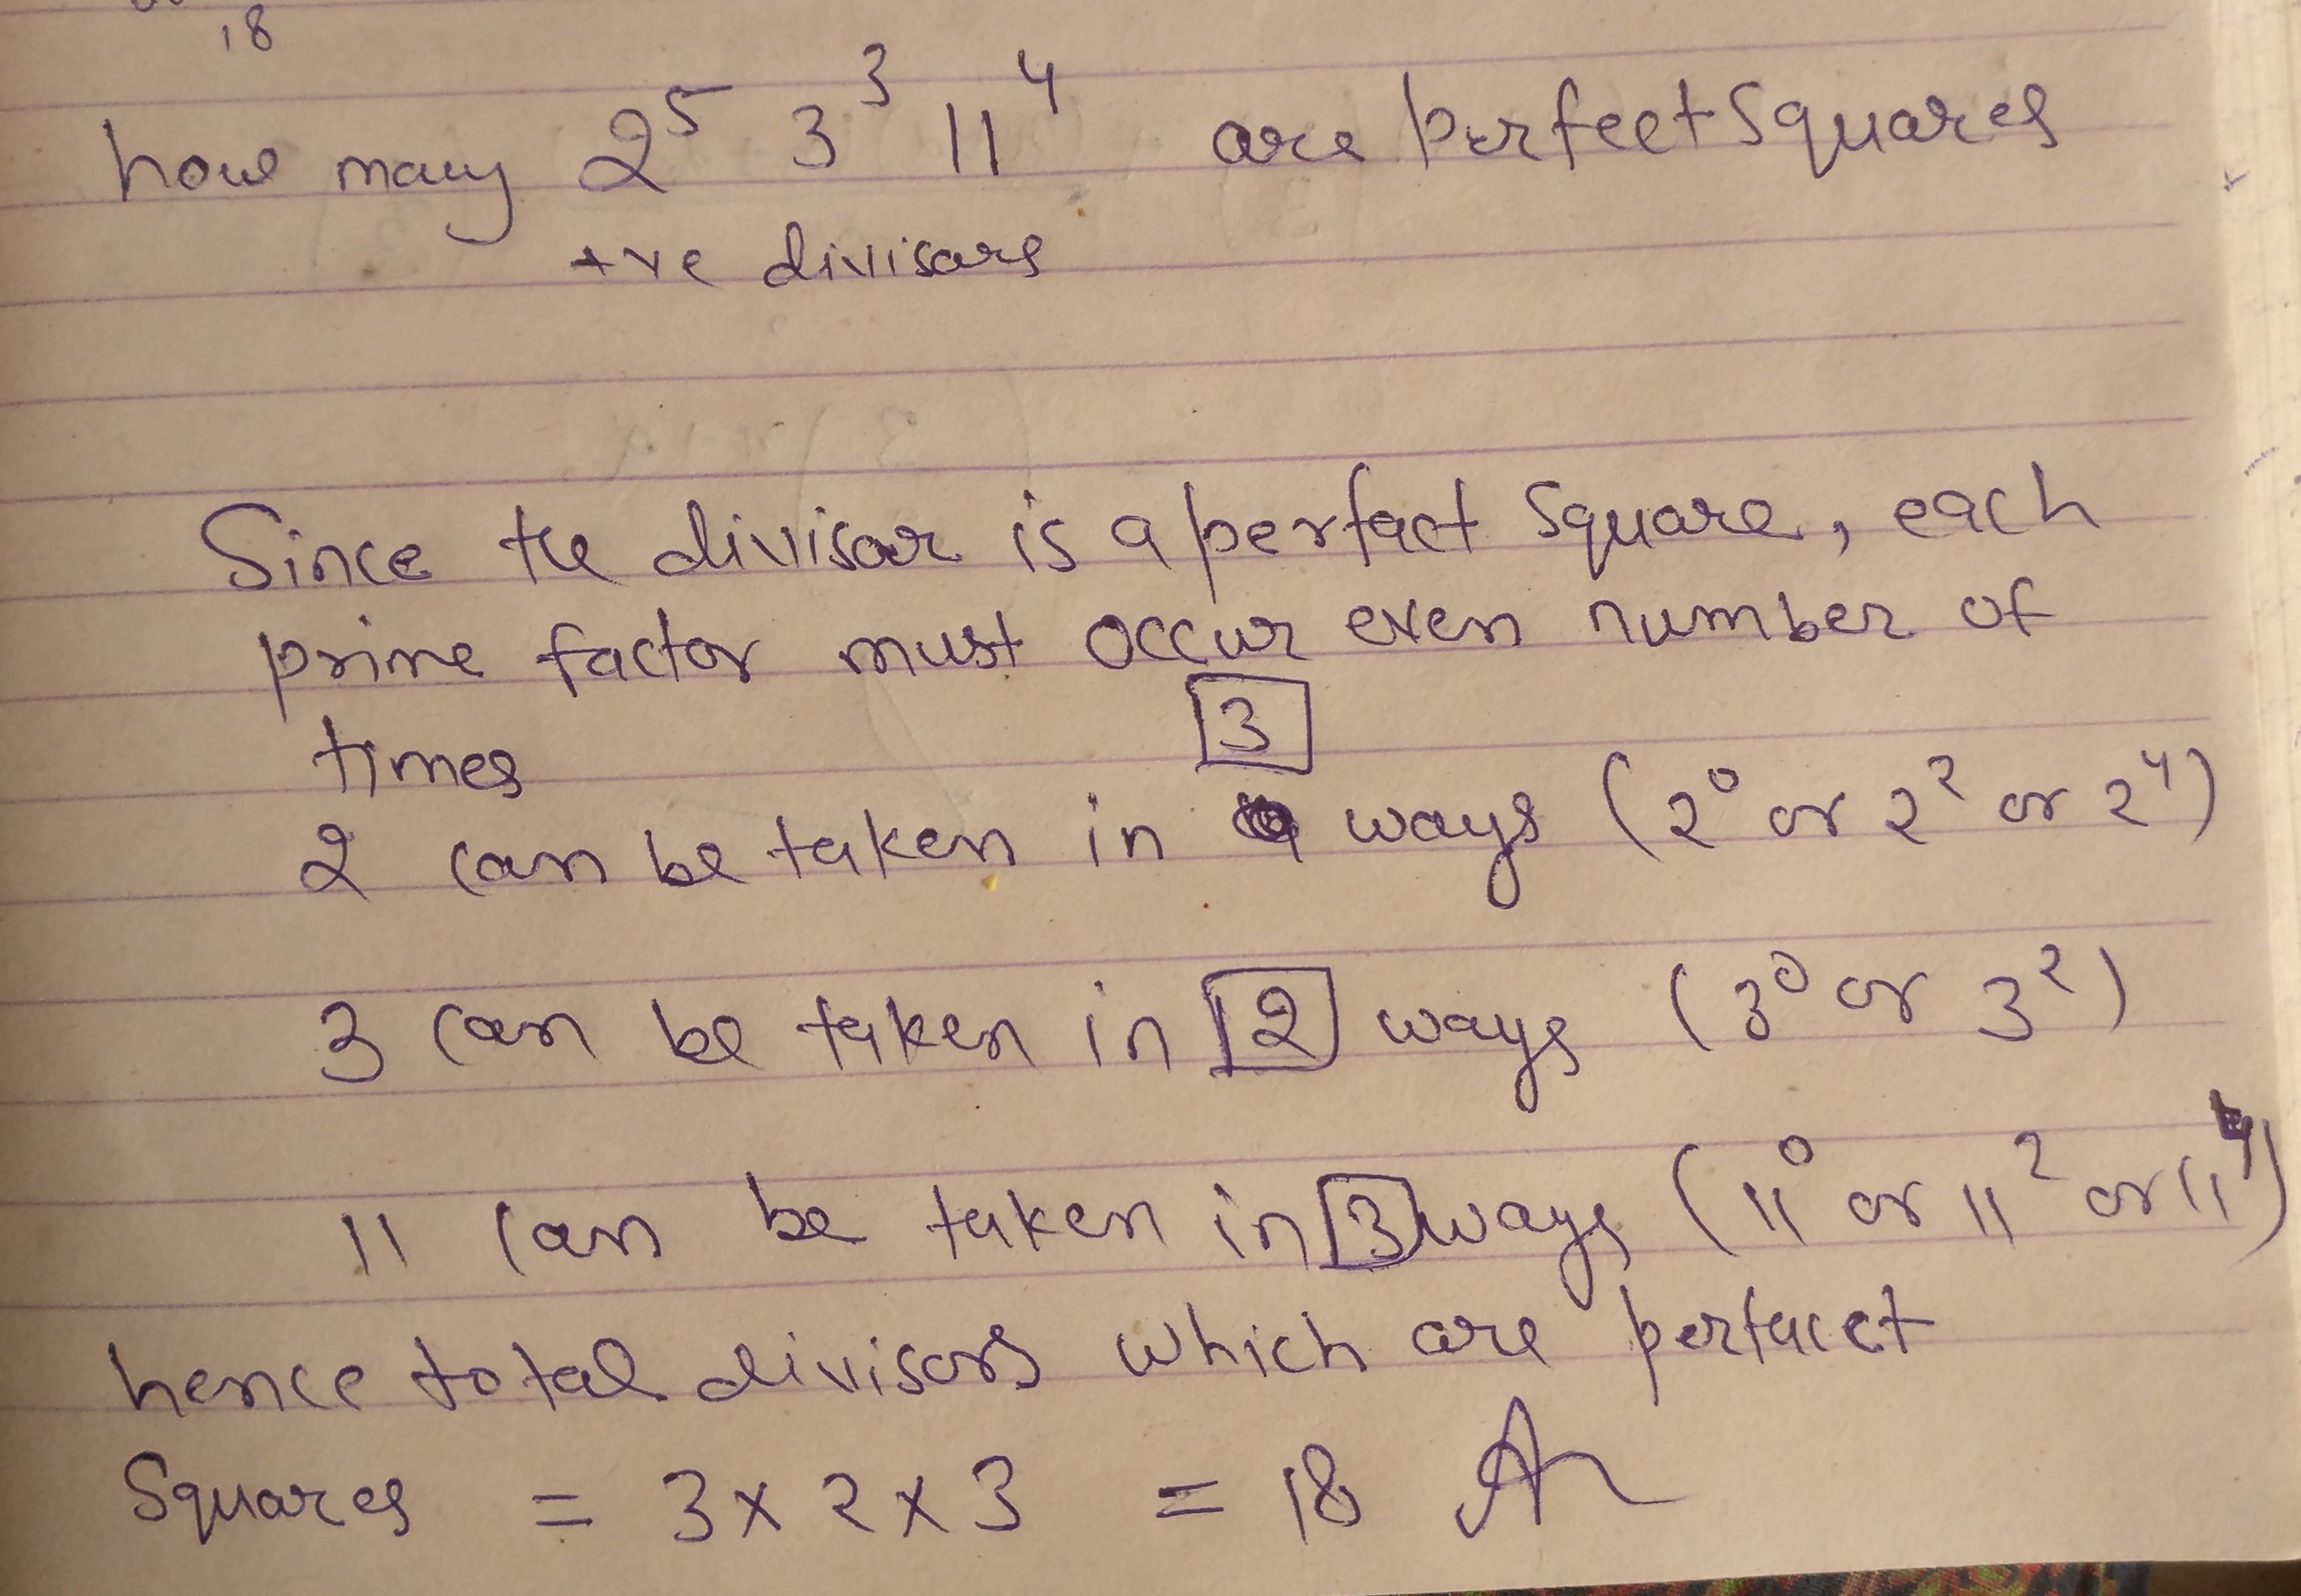 18
how many 2⁵ 3³ 11⁴ are perfect Squares
+ve divisors
Since the divisor is a perfact Square, each
prime factor must occur even number of
times
3
2 can be taken in ways (2⁰ or 2² or 2⁴)
3 can be taken in 2 ways (3⁰ or 3²)
11 can be taken in 3 ways (11⁰ or 11² or 11⁴)
hence total divisors which are perfacet
Squares = 3 x 2 x 3 = 18